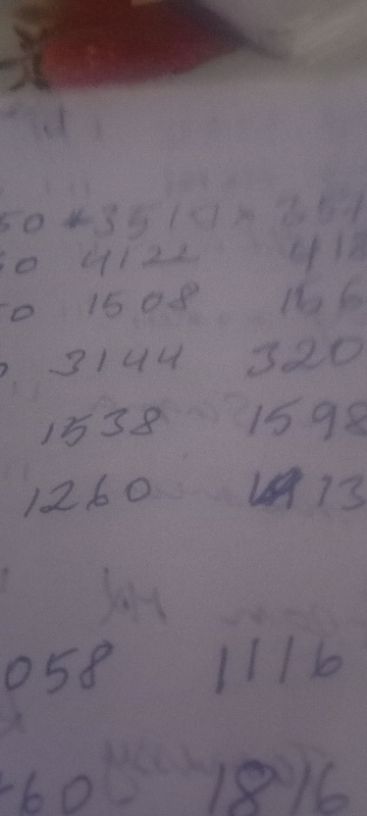 50 3510 351
50 4122 418
50 1508 156
3144 320
1538 1598
1260 13
058 1116
60 1816